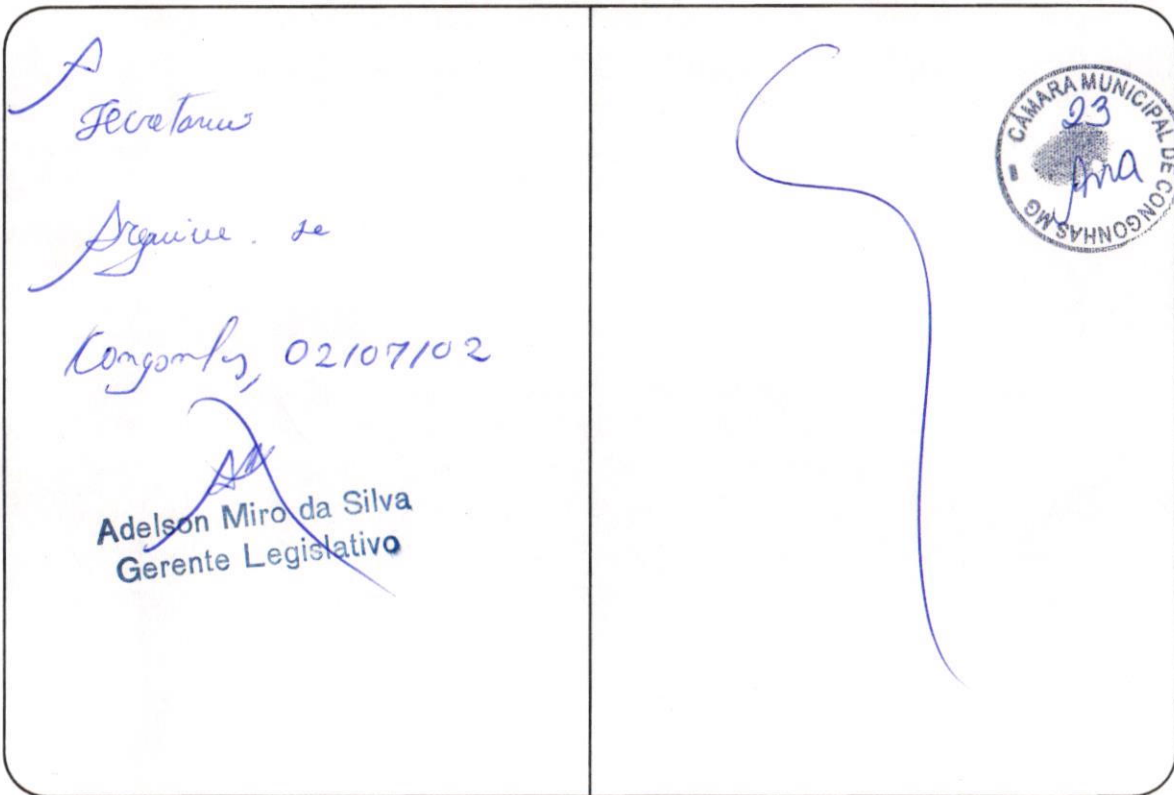 A
Secretaria
Arquive-se
Congonhas, 02/07/02
Adelson Miro da Silva
Gerente Legislativo
CÂMARA MUNICIPAL DE CONGONHAS MG
23
Ana